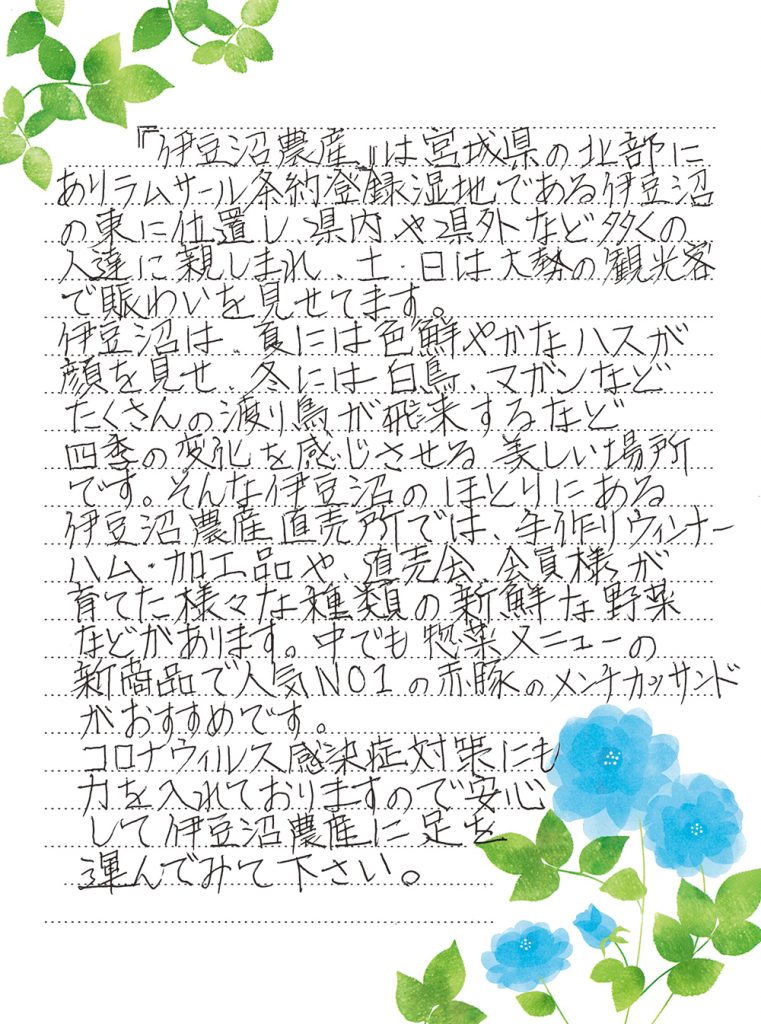 『伊豆沼農産』は宮城県の北部に
ありラムサール条約登録湿地である伊豆沼
の東に位置し、県内や県外など多くの
人達に親しまれ、土・日は大勢の観光客
で賑わいを見せてます。
伊豆沼は、夏には色鮮やかなハスが
顔を見せ、冬には白鳥、マガンなど
たくさんの渡り鳥が飛来するなど
四季の変化を感じさせる美しい場所
です。そんな伊豆沼のほとりにある
伊豆沼農産直売所では、手作りウィンナー
ハム・加工品や、直売会会員様が
育てた様々な種類の新鮮な野菜
などがあります。中でも惣菜メニューの
新商品で人気NO1の赤豚のメンチカツサンド
がおすすめです。
コロナウィルス感染症対策にも
力を入れておりますので安心
して伊豆沼農産に足を
運んでみて下さい。